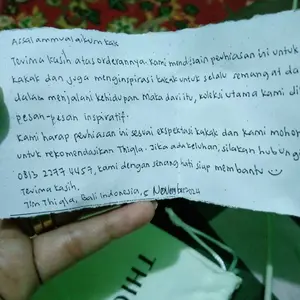 Assalammualaikum kak
Terima kasih atas orderannya. kami mendesain perhiasan ini untuk
kakak dan juga menginspirasi kakak untuk selalu semangat da
dalam menjalani kehidupan. Maka dari itu, koleksi utama kami di
pesan-pesan inspiratif.
Kami harap perhiasan ini sesuai ekspektasi kakak dan kami mohon
untuk rekomendasikan Thiqla. Jika ada keluhan, silakan hubung
0813 2297 4457, kami dengan senang hati siap membantu
Terima kasih,
Tim Thiqla, Bali Indonesia, 5 November 2024
THIQ